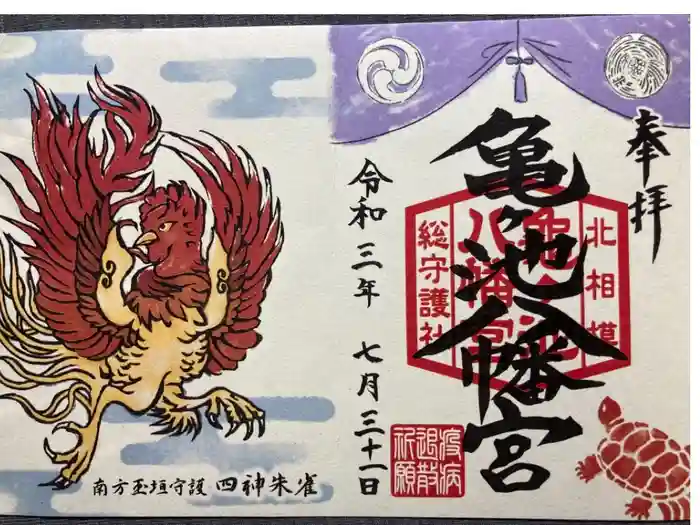 奉拝
亀ヶ池八幡宮
北相模
亀ヶ池
八幡宮
総守護社
疫病
退散
祈願
令和三年 七月三十一日
南方玉垣守護 四神朱雀